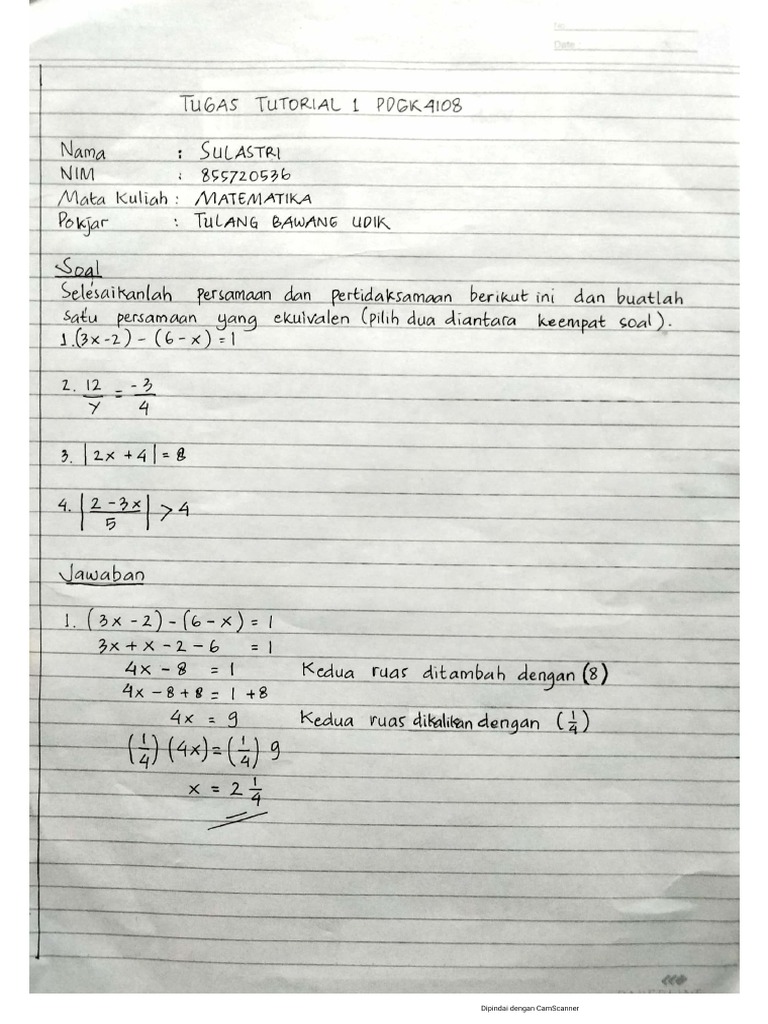 No.
Date :
TUGAS TUTORIAL 1 PDGK4108
Nama : SULASTRI
NIM : 855720536
Mata Kuliah : MATEMATIKA
Pokjar : TULANG BAWANG UDIK
Soal
Selesaikanlah persamaan dan pertidaksamaan berikut ini dan buatlah
satu persamaan yang ekuivalen (pilih dua diantara keempat soal).
1. (3x-2) - (6-x) = 1
2. 12/y = -3/4
3. |2x + 4| = 8
4. |(2 - 3x)/5| > 4
Jawaban
1. (3x - 2) - (6 - x) = 1
3x + x - 2 - 6 = 1
4x - 8 = 1 Kedua ruas ditambah dengan (8)
4x - 8 + 8 = 1 + 8
4x = 9 Kedua ruas dikalikan dengan (1/4)
(1/4) (4x) = (1/4) 9
x = 2 1/4
Dipindai dengan CamScanner